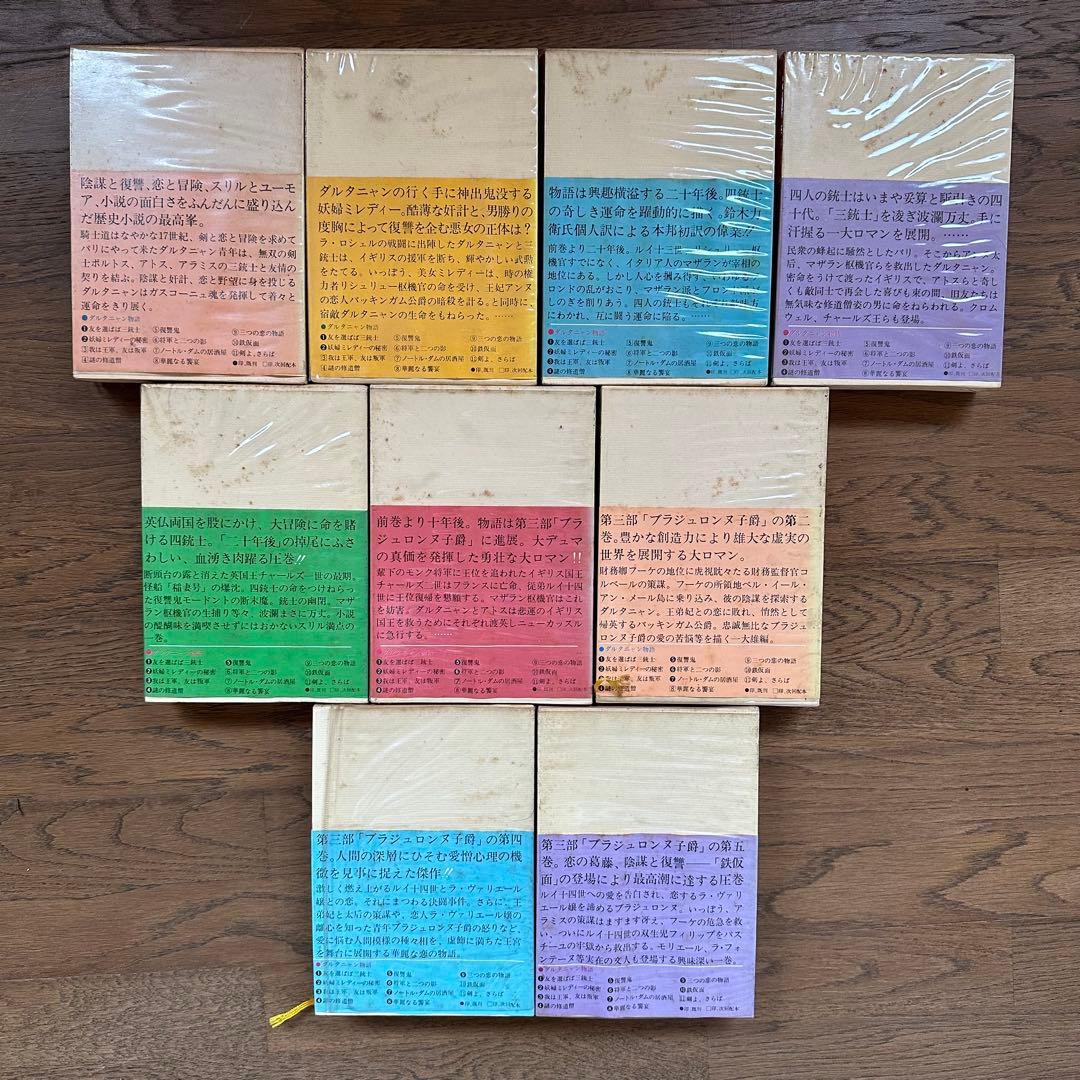 陰謀と復讐、恋と冒険、スリルとユーモ
ア、小説の面白さをふんだんに盛り込ん
だ歴史小説の最高峯。
騎士道はなやかな17世紀、剣と恋と冒険を求めて
パリにやって来たダルタニャン青年は、無双の剣
士ポルトス、アトス、アラミスの三銃士と友情の
契りを結ぶ。陰謀と奸計、恋と野望に身を投じる
ダルタニャンはガスコーニュ魂を発揮して着々と
運命をきり展く。
●ダルタニャン物語
❶友を選ばば三銃士 ⑤復讐鬼 ⑨三つの恋の物語
②妖婦ミレディーの秘密 ⑥将軍と二つの影 ⑩鉄仮面
③我は王軍、友は叛軍 ⑦ノートル・ダムの居酒屋 ⑪剣よ、さらば
④謎の修道僧 ⑧華麗なる饗宴 ●印、既刊 □印、次回配本
ダルタニャンの行く手に神出鬼没する
妖婦ミレディー。酷薄な奸計と、男勝りの
度胸によって復讐を企む悪女の正体は？
ラ・ロシェルの戦闘に出陣したダルタニャンと三
銃士は、イギリスの援軍を断ち、輝やかしい武勲
をたてる。いっぽう、美女ミレディーは、時の権
力者リシュリュー枢機官の命を受け、王妃アンヌ
の恋人バッキンガム公爵の暗殺を計る。と同時に、
宿敵ダルタニャンの生命をもねらった。……
●ダルタニャン物語
❶友を選ばば三銃士 ⑤復讐鬼 ⑨三つの恋の物語
❷妖婦ミレディーの秘密 ⑥将軍と二つの影 ⑩鉄仮面
③我は王軍、友は叛軍 ⑦ノートル・ダムの居酒屋 ⑪剣よ、さらば
④謎の修道僧 ⑧華麗なる饗宴 ●印、既刊 □印、次回配本
物語は興趣横溢する二十年後。四銃士
の奇しき運命を躍動的に描く。鈴木力
衛氏個人訳による本邦初訳の偉業!!
前巻より二十年後。ルイ十三世、枢
機官すでになく、イタリア人のマザランが宰相の
地位にある。しかし人心を掴み得ず、
ロンドの乱がおこり、マザラン派とフロン
しのぎを削りあう。四人の銃士も
にわかれ、互に闘う運命に陥る。……
●ダルタニャン物語
❶友を選ばば三銃士 ⑤復讐鬼 ⑨三つの恋の物語
❷妖婦ミレディーの秘密 ⑥将軍と二つの影 ⑩鉄仮面
❸我は王軍、友は叛軍 ⑦ノートル・ダムの居酒屋 ⑪剣よ、さらば
④謎の修道僧 ⑧華麗なる饗宴 ●印、既刊 □印、次回配本
四人の銃士はいまや妥算と駈引きの四
十代。「三銃士」を凌ぎ波瀾万丈。手に
汗握る一大ロマンを展開。……
民衆の蜂起に騒然としたパリ。そこからアンヌ太
后、マザラン枢機官らを救出したダルタニャン。
密命をうけて渡ったイギリスで、アトスらと奇し
くも敵同士で再会した喜びも束の間、旧友たちは
無気味な修道僧姿の男に命をねらわれる。クロム
ウェル、チャールズ王らも登場。
●ダルタニャン物語
❶友を選ばば三銃士 ⑤復讐鬼 ⑨三つの恋の物語
❷妖婦ミレディーの秘密 ⑥将軍と二つの影 ⑩鉄仮面
❸我は王軍、友は叛軍 ⑦ノートル・ダムの居酒屋 ⑪剣よ、さらば
❹謎の修道僧 ⑧華麗なる饗宴 ●印、既刊 □印、次回配本
英仏両国を股にかけ、大冒険に命を賭
ける四銃士。「二十年後」の掉尾にふさ
わしい、血湧き肉躍る圧巻!!
断頭台の露と消えた英国王チャールズ一世の最期。
怪船「稲妻号」の爆沈。四銃士の命をつけねらっ
た復讐鬼モードントの断末魔。銃士の幽閉。マザ
ラン枢機官の生捕り等々、波瀾まさに万丈。小説
の醍醐味を満喫させずにはおかないスリル満点の
一巻。
●ダルタニャン物語
❶友を選ばば三銃士 ❺復讐鬼 ⑨三つの恋の物語
❷妖婦ミレディーの秘密 ⑥将軍と二つの影 ⑩鉄仮面
❸我は王軍、友は叛軍 ⑦ノートル・ダムの居酒屋 ⑪剣よ、さらば
❹謎の修道僧 ⑧華麗なる饗宴 ●印、既刊 □印、次回配本
前巻より十年後。物語は第三部「ブラ
ジュロンヌ子爵」に進展。大デュマ
の真価を発揮した勇壮な大ロマン!!
輩下のモンク将軍に王位を追われたイギリス国王
チャールズ二世はフランスに亡命、従弟ルイ十四
世に王位復帰を懇願する。マザラン枢機官はこれ
を妨害。ダルタニャンとアトスは悲運のイギリス
国王を救うためにそれぞれ渡英しニューカッスル
に急行する。……
●ダルタニャン物語
❶友を選ばば三銃士 ❺復讐鬼 ⑨三つの恋の物語
❷妖婦ミレディーの秘密 ❻将軍と二つの影 ⑩鉄仮面
❸我は王軍、友は叛軍 ⑦ノートル・ダムの居酒屋 ⑪剣よ、さらば
❹謎の修道僧 ⑧華麗なる饗宴 ●印、既刊 □印、次回配本
第三部「ブラジュロンヌ子爵」の第二
巻。豊かな創造力により雄大な虚実の
世界を展開する大ロマン。
財務卿フーケの地位に虎視眈々たる財務監督官コ
ルベールの策謀。フーケの所領地ベル・イール・
アン・メール島に乗り込み、彼の陰謀を探索する
ダルタニャン。王弟妃との恋に敗れ、悄然として
帰英するバッキンガム公爵。忠誠無比なブラジュ
ロンヌ子爵の愛の苦悩等を描く一大雄編。
●ダルタニャン物語
❶友を選ばば三銃士 ❺復讐鬼 ⑨三つの恋の物語
❷妖婦ミレディーの秘密 ❻将軍と二つの影 ⑩鉄仮面
我は王軍、友は叛軍 ❼ノートル・ダムの居酒屋 ⑪剣よ、さらば
❹謎の修道僧 ⑧華麗なる饗宴 ●印、既刊 □印、次回配本
第三部「ブラジュロンヌ子爵」の第四
巻。人間の深層にひそむ愛憎心理の機
微を見事に捉えた傑作!!
激しく燃え上がるルイ十四世とラ・ヴァリエール
嬢との恋、それにまつわる決闘事件。さらに、王
弟妃と太后の策謀や、恋人ラ・ヴァリエール嬢の
離心を知った青年ブラジュロンヌ子爵の怒りなど、
愛に悩む人間模様の種々相を、虚飾に満ちた王宮
を舞台に展開する華麗な恋の物語。
●ダルタニャン物語
❶友を選ばば三銃士 ❺復讐鬼 ❾三つの恋の物語
❷妖婦ミレディーの秘密 ❻将軍と二つの影 ⑩鉄仮面
❸我は王軍、友は叛軍 ❼ノートル・ダムの居酒屋 ⑪剣よ、さらば
❹謎の修道僧 ❽華麗なる饗宴 ●印、既刊 □印、次回配本
第三部「ブラジュロンヌ子爵」の第五
巻。恋の葛藤、陰謀と復讐――「鉄仮
面」の登場により最高潮に達する圧巻
ルイ十四世への愛を告白され、恋するラ・ヴァリ
エール嬢を諦めるブラジュロンヌ。いっぽう、ア
ラミスの策謀はますます冴え、フーケの危急を救
い、ついにルイ十四世の双生児フィリップをバス
チーユの牢獄から救出する。モリエール、ラ・フォ
ンテーヌ等実在の文人も登場する興味深い一巻。
●ダルタニャン物語
❶友を選ばば三銃士 ❺復讐鬼 ❾三つの恋の物語
❷妖婦ミレディーの秘密 ❻将軍と二つの影 ❿鉄仮面
❸我は王軍、友は叛軍 ❼ノートル・ダムの居酒屋 ⑪剣よ、さらば
❹謎の修道僧 ❽華麗なる饗宴 ●印、既刊 □印、次回配本